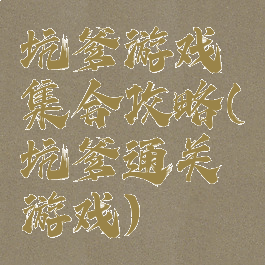 坑爹游戏
集合攻略(
坑爹通关
游戏)